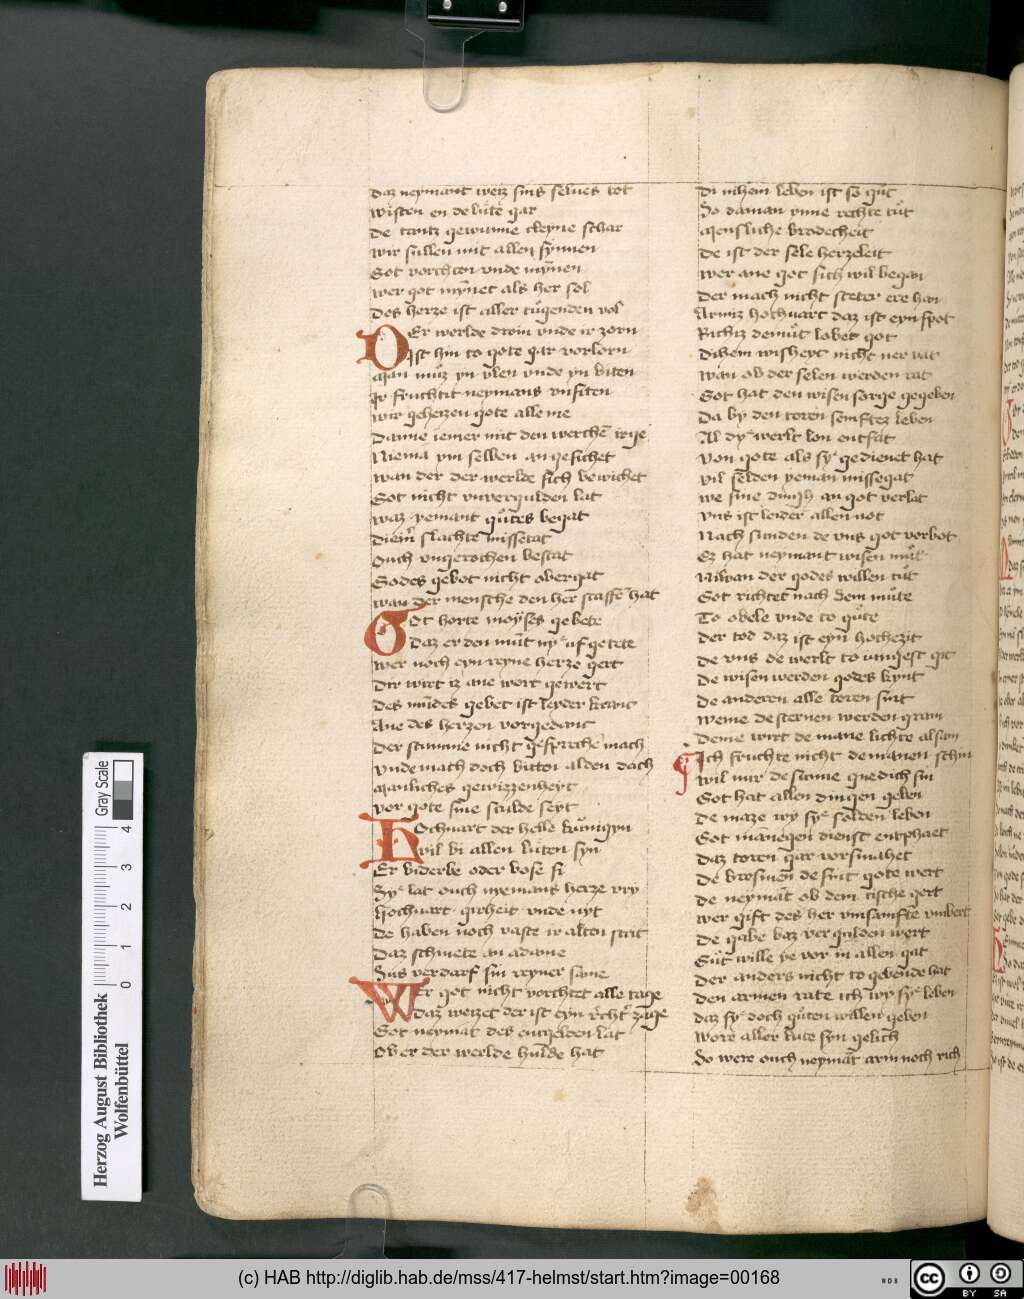 daz neymant weiz sins selues tot
wisten en de lute gar
de tantz gewunne cleyne schar
wir sullen mit allen synnen
Got vorchten vnde mynen
wer got mynet als her sol
Des herze ist aller tugenden vol
DEr werlde drom vnde ir zorn
Ist hin to gote gar vorlorn
Man muz yn vlen vnde yn biten
Ir fruchtit neymans vnsiten
wir geheizen gote alle nie
Danne iemer mit den werchē irge
Niema ym selben an gesichet
wan der der werlde sich bewichet
Got nicht vnvergulden lat
waz yemant gutes begat
slachte missetat
Ouch vngerochen bestat
Godes gebot nicht obergat
wan der mensche den her scaffē hat
GOt horte moyses gebete
Daz er den munt ny uf getete
wer noch eyn reyne herze gert
Dir wirt iz ane wort gewert
Des mundes gebet ist leyder kranc
Ane des herzen vorgedanc
Der stimme nicht gesprechē mach
vnde mach doch bitten al den dach
Manliches gewizzenheyt
vor gote sine sculde seyt
HOchuart der helle kunigyn
wil bi allen luten syn
Er biderbe oder bose si
Sy lat ouch nyemans herze vry
Hochuart girheit vnde nyt
De haben noch vaste ir alten strit
Daz schinete an adame
Sus verdarf sin reyner same
WEr got nicht vorchtet alle tage
daz weizet der ist eyn recht zage
Got neymat des entgelden lat
Ob er der werlde hulde hat
Di nihein leben ist so gut
So daman ynne rechte tut
Mensliche brodecheit
De ist der sele herzeleit
wer ane got sich wil began
Der mach nicht steter ere han
Armiz hochuart daz ist eyn spot
Richiz demut lobet got
Dihem wisheyt nicht ner vat
wan ob der selen werden rat
Got hat den wisen sorge gegeben
Da by den toren semftez leben
Al dy werlt lon entfat
von gote als sy gedienet hat
vil selden yeman missegat
we sine dingh an got verlat
vns ist leider allen not
Nach sunden de vns got verbot
Ez hat neymant wisen mut
Niwan der godes willen tut
Got richtet nach dem mute
To obele vnde to gute
Der tod daz ist eyn hochezit
De vns de werlt to iungest git
De wisen werden godes kynt
De anderen alle toren sint
weme de sternen werden gram
Deme wirt de mane lichte alsam
Ich fruchte nicht de manen schin
wil mir de sunne gnedich sin
Got hat allen dingen geben
De maze wy sy solden leben
Got mānegen dienst entphaet
Daz toren gar vorsmahet
De brosmen de sint gote wert
De neymāt ob dem tische gert
wer gift des her vnsamfte vmbert
De gabe baz vergulden wert
Gut wille ye vor in allen gat
Der anders nicht to gebende hat
Den armen rate ich wy sy leben
Daz sy doch guten willen geben
Wore aller lute syn gelich
So were ouch neymāt arm noch rich
Gray Scale
4
3
2
1
0
Herzog August Bibliothek
Wolfenbüttel
(c) HAB http://diglib.hab.de/mss/417-helmst/start.htm?image=00168
WDB
cc
BY
SA